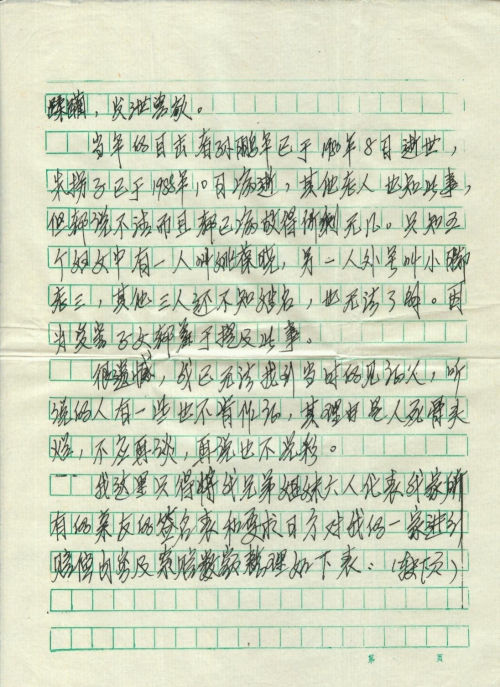 蹂躏，发泄兽欲。
当年的目击者孙鹏年已于1980年8月逝世，
朱拐子已于1988年10月病逝，其他老人也知此事，
但都说不清而且都已病故得所剩无几。只知五
个妇女中有一人叫姚葆晓，另一人外号叫小脚
表三，其他三人还不知姓名，也无法了解。因
为受害子女都羞于提及此事。
很遗憾，我已无法找到当时的见证人，听
说的人有一些也不肯作证，其理由是人死骨头
烂，不应再谈，再说也不光彩。
我这里只得将我兄弟姐妹六人代表我家所
有的亲友的签名表和要求日方对我们一家进行
赔偿内容及索赔数额整理如下表：（转下页）
第 页